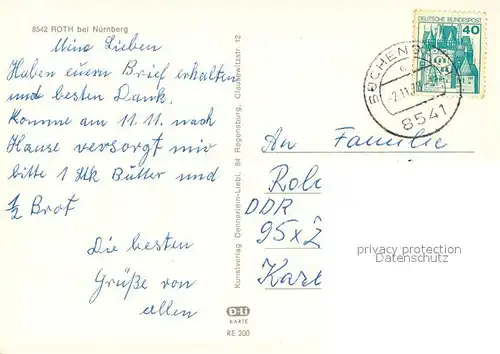 8542 ROTH bei Nürnberg
Meine Lieben
Haben euern Brief erhalten
und besten Dank.
Komme am 11.11. nach
Hause versorgt mir
bitte 1 Stk Butter und
1/2 Brot
Die besten
Grüße von
allen
Kunstverlag Dennerlein-Liebl, 84 Regensburg, Clausewitzstr. 12
D-Li
KARTE
RE 200
DEUTSCHE BUNDESPOST
40
8541
An Familie
DDR
privacy protection
Datenschutz